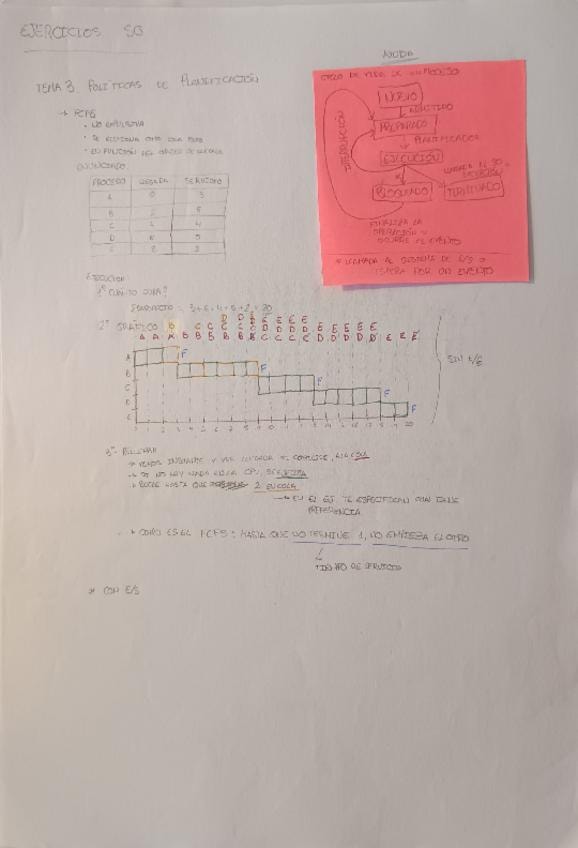 EJERCICIOS SO
TEMA 3. POLÍTICAS DE PLANIFICACIÓN
→ FCFS
• NO EXPULSIVA
• SE
• EN FUNCIÓN DEL ORDEN DE LLEGADA
ENUNCIADO
PROCESO LLEGADA SERVICIO
A 0 3
B 2 6
C 4 4
D 6 5
E 8 2
AYUDA
CICLO DE VIDA DE UN PROCESO
NUEVO
ADMITIDO
PREPARADO
PLANIFICADOR
INTERRUPCIÓN
EJECUCIÓN
LLAMADA AL SO o
BLOQUEADO
TERMINADO
FINALIZA LA
OPERACIÓN u
OCURRE EL EVENTO
* LLAMADA AL SISTEMA DE E/S o
ESPERA POR UN EVENTO
1º CUÁNTO DURA?
3+6+4+5+2 = 20
2º GRÁFICO
D D E E E E
B C C C C D D D D E E E E E
A A A B B B B B B C C C C D D D D D E E
A
B
C
D
E
F
F
F
F
F
SIN E/S
3º RELLENAR
→ VEMOS INSTANTE Y VER LLEGADA
→ SI NO HAY NADA EN LA CPU, SE EJECUTA
HASTA QUE 2 EN COLA
→ EN EL EJ. TE ESPECIFICAN CUAL TIENE
PREFERENCIA
→ COMO ES EL FCFS: HASTA QUE NO TERMINE 1, NO EMPIEZA EL OTRO
TIEMPO DE SERVICIO
* CON E/S